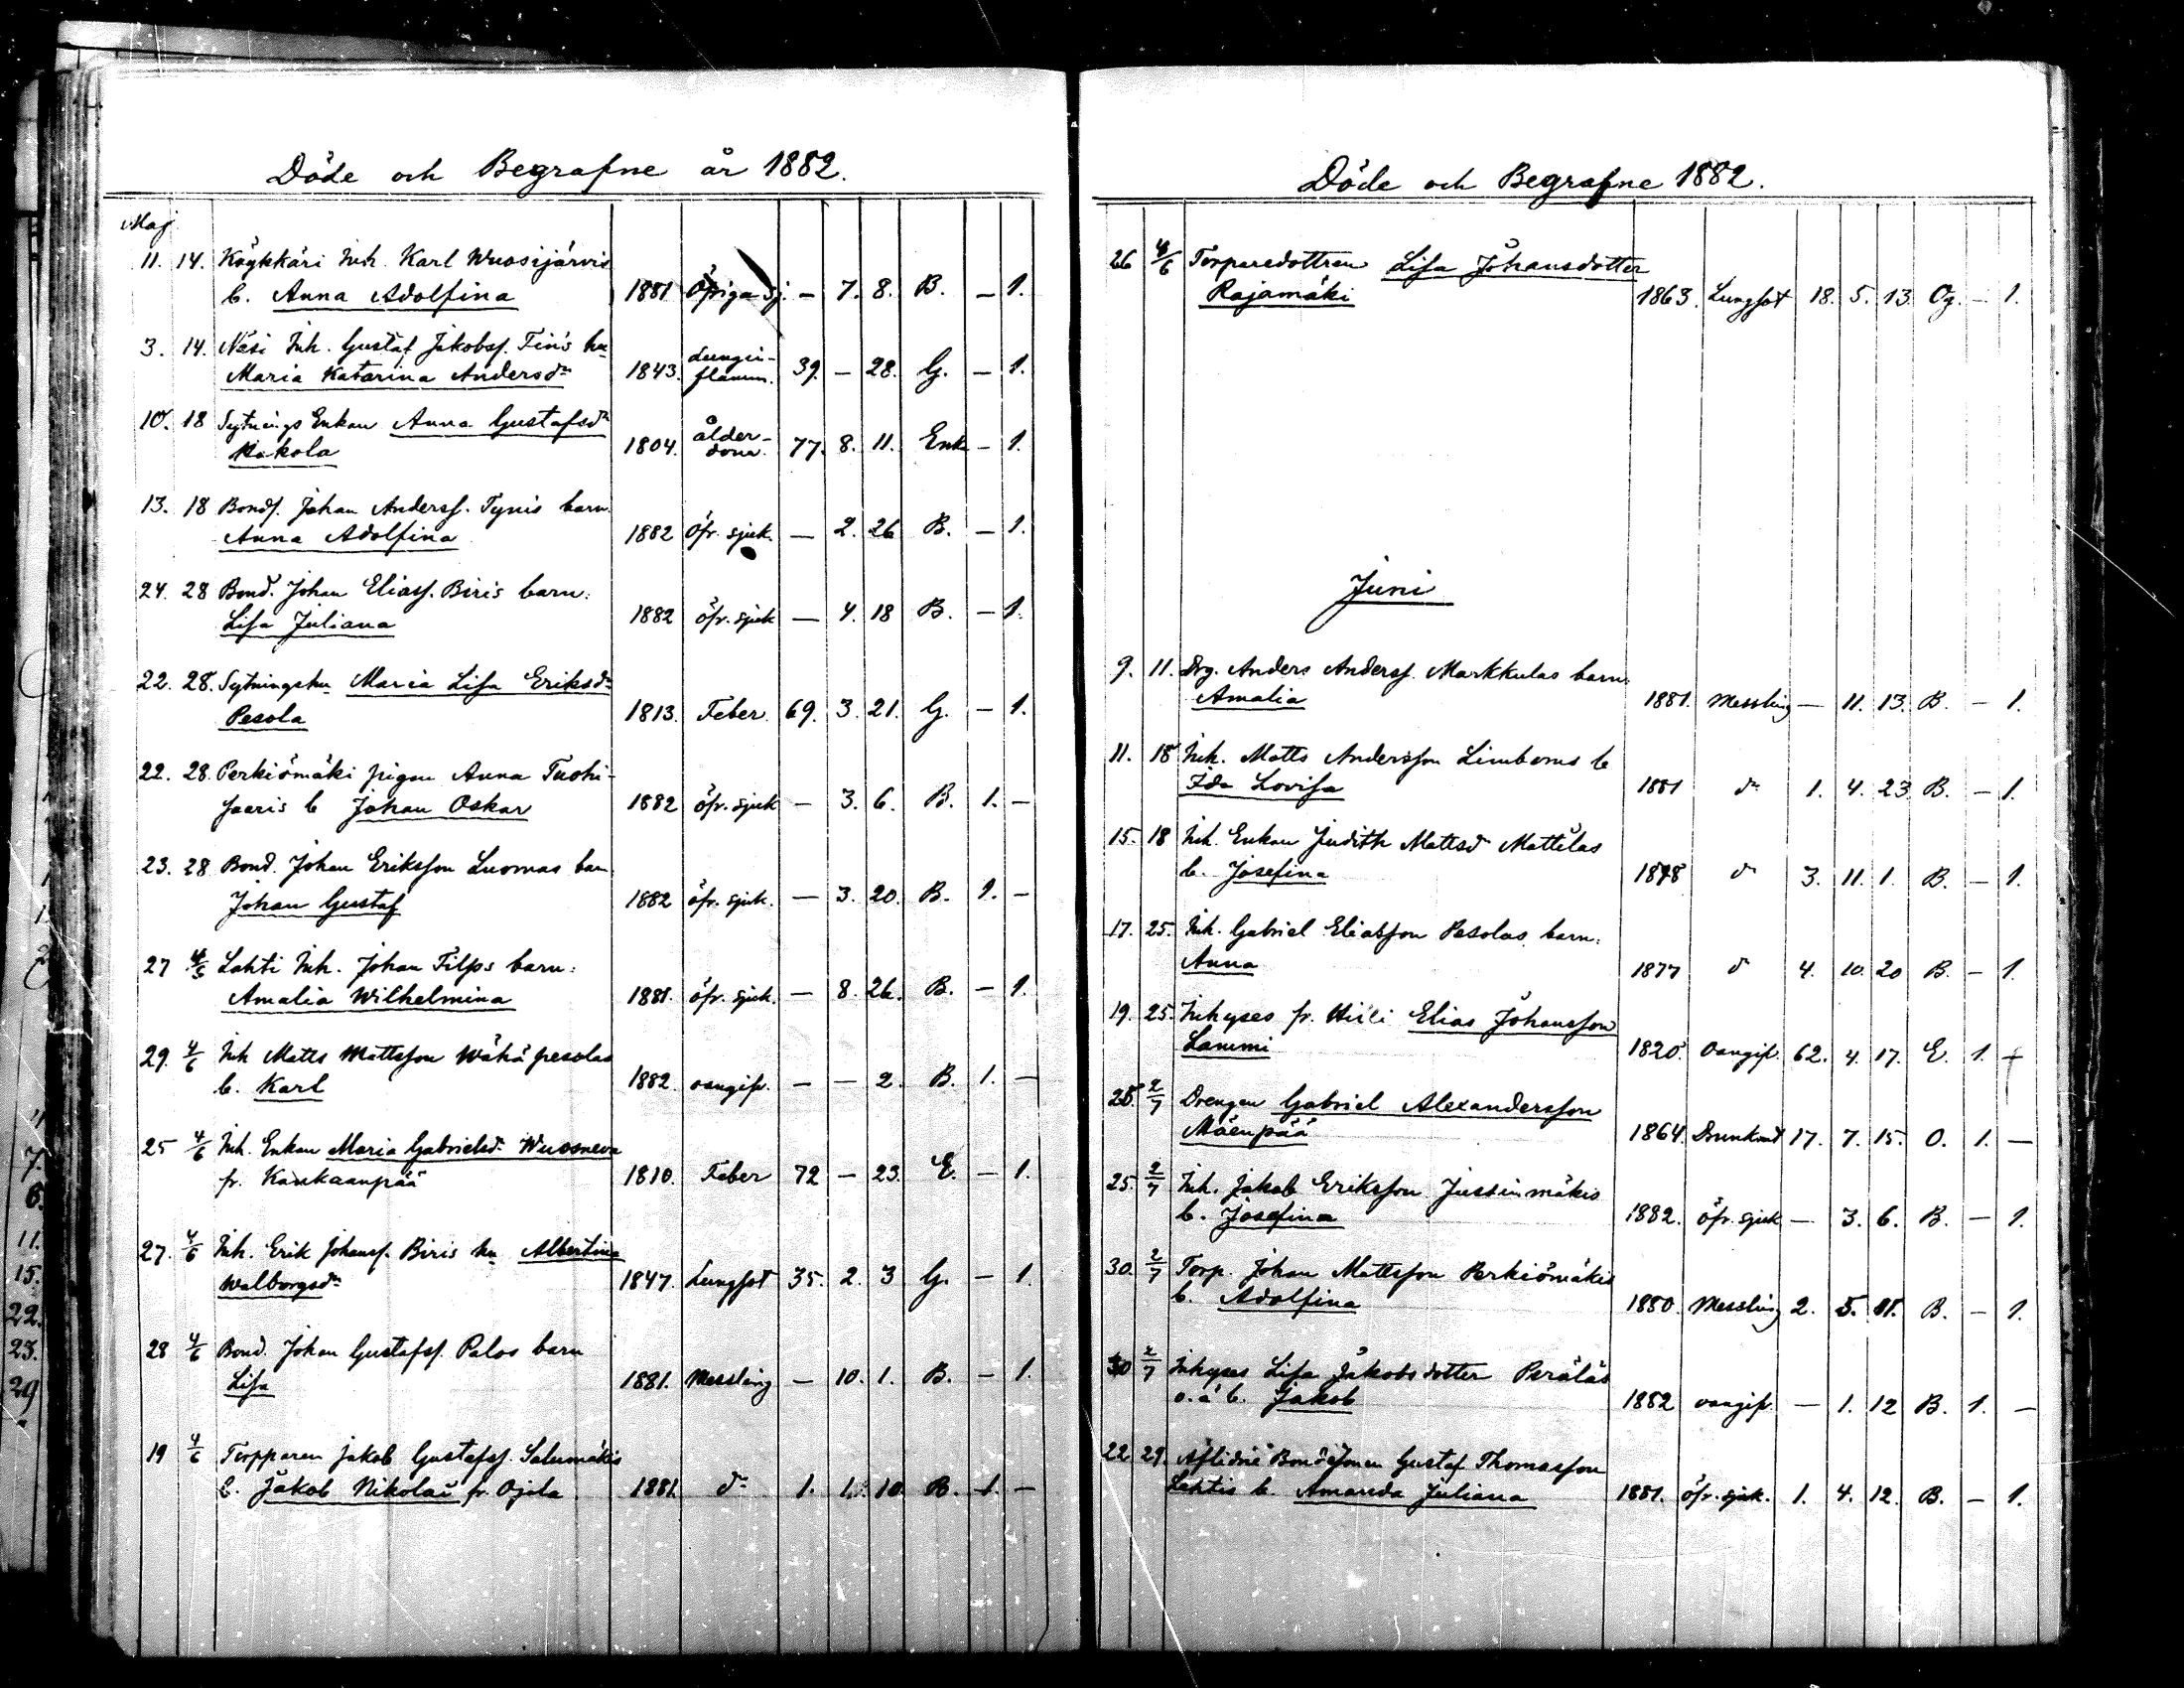 Döde och Begrafne år 1882.
Maj
11. 14. Köykkäri Inh. Karl Wuosijärvis
b. Anna Adolfina 1881 Öfriga sj. — 7. 8. B. — 1.
3. 14. Näsi Inh. Gustaf Jakobsf. Finis hu
Maria Katarina Andersdr 1843. Lungin-flamm. 39. — 28. G. — 1.
10. 18 Sytnings Enkan Anna Gustafsdr
Kakola 1804. ålder-dom. 77. 8. 11. Enk — 1.
13. 18 Bonds. Johan Andersf. Tynis barn
Anna Adolfina 1882 öfr. sjuk. — 2. 26 B. — 1.
24. 28 Bond. Johan Eliasf. Biris barn:
Lisa Juliana 1882 öfr. sjuk — 4. 18 B. — 1.
22. 28. Sytningshu Maria Lisa Eriksdr
Pesola 1813. Feber. 69. 3. 21. G. — 1.
22. 28. Perkiömäki pigan Anna Tuohi-
saaris b Johan Oskar 1882 öfr. sjuk — 3. 6. B. 1. —
23. 28 Bond. Johan Eriksson Luomas barn
Johan Gustaf 1882 öfr. sjuk. — 3. 20. B. 1. —
27 4/6 Lahti Inh. Johan Filps barn:
Amalia Wilhelmina 1881. öfr. sjuk. — 8. 26. B. — 1.
29. 4/6 Inh Matts Mattsson Wähäpesolas
b. Karl 1882. oangif. — — 2. B. 1. —
25 4/6 Inh. Enkan Maria Gabrielsd. Wuosneva
fr. Kankaanpää 1810. Feber 72 — 23. E. — 1.
27. 4/6 Inh. Erik Johansf. Biris hu Albertina
Walborgsdr 1847. Lungsot 35. 2. 3 G. — 1.
28 4/6 Bond. Johan Gustafsf. Palos barn
Lisa 1881. Messling — 10. 1. B. — 1.
19 4/6 Torpparen Jakob Gustafsf. Salumäkis
b. Jakob Nikolai fr. Ojala 1881. do 1. 1. 10. B. 1. —
Döde och Begrafne 1882.
26 4/6 Torparedottren Lisa Johansdotter
Rajamäki 1863. Lungsot 18. 5. 13. Og. — 1.
Juni
9. 11. Drg. Anders Andersf. Markkulas barn:
Amalia 1881. Messling — 11. 13. B. — 1.
11. 18 Inh. Matts Andersson Limberns b
Ida Lovisa 1881 do 1. 4. 23. B. — 1.
15. 18 Inh. Enkan Judith Mattsd Mattilas
b. Josefina 1878 do 3. 11. 1. B. — 1.
17. 25. Inh. Gabriel Eliasson Pesolas barn:
Anna 1877 do 4. 10. 20 B. — 1.
19. 25. Inhyses fr. Elias Johansson
Lammi 1820. Oangif. 62. 4. 17. E. 1. —
25. 2/7 Drengen Gabriel Alexandersson
Mäenpää 1864. Drunknat 17. 7. 15. O. 1. —
25. 2/7 Inh. Jakob Eriksson Jussinmäkis
b. Josefina 1882. öfr. sjuk — 3. 6. B. — 1.
30. 2/7 Torp. Johan Mattsson Perkiömäkis
b. Adolfina 1880. Messling 2. 5. 11. B. — 1.
30 2/7 Inhyses Lisa Jakobsdotter Peräläs
o.ä b. Jakob 1882 oangif. — 1. 12 B. 1. —
22 29. Aflidne Bondesonen Gustaf Thomasson
Lahtis b. Amanda Juliana 1881. öfr. sjuk. 1. 4. 12. B. — 1.
1.
2
7.
6.
11.
15.
22.
23.
29